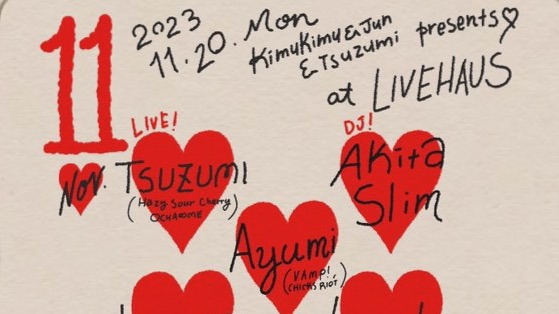 11
2023
11.20. Mon
KimuKimu & Jun
& Tsuzumi
presents♡
at LIVEHAUS
LIVE!
Nov.
TSUZUMI
(Hazy Sour Cherry
OCHA∞ME)
DJ!
Akita
Slim
Ayumi
(VAMP!
CHICKS RIOT)